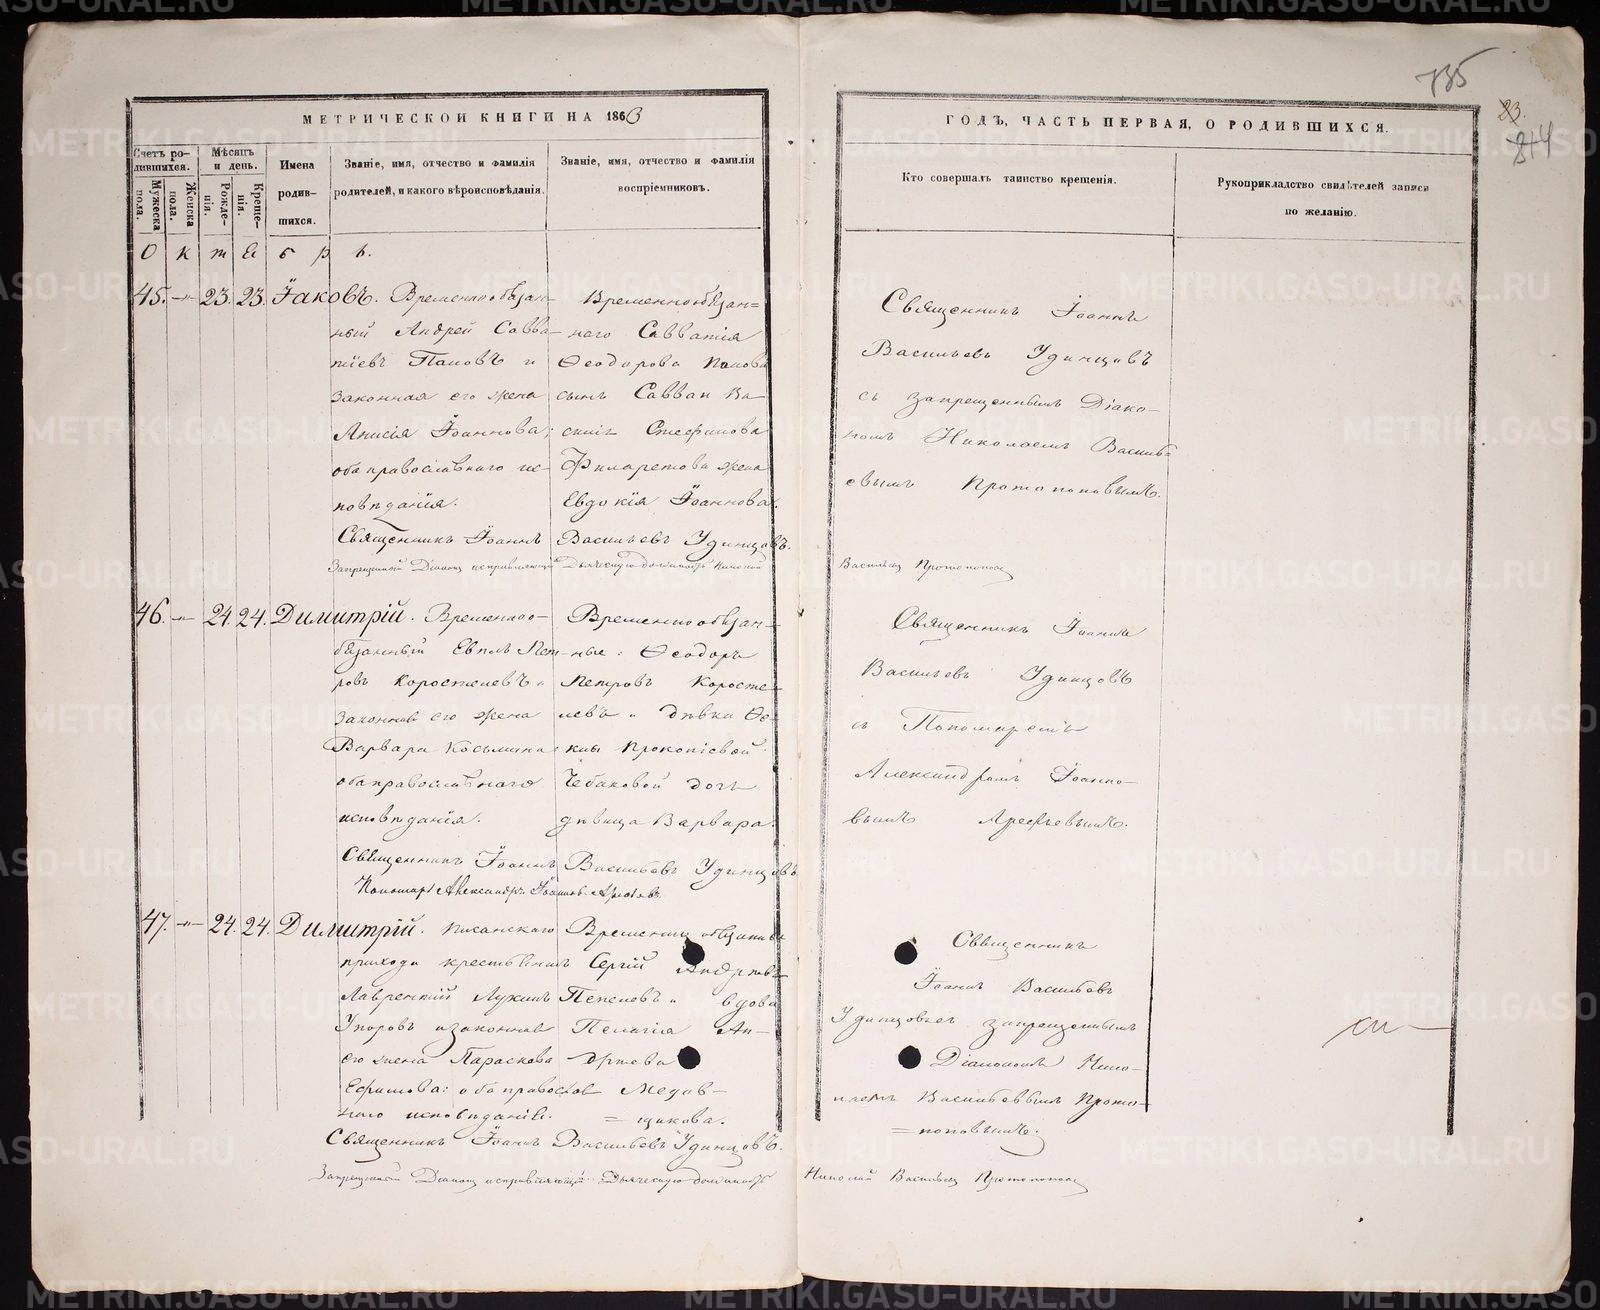 735
23.
844
МЕТРИЧЕСКОЙ КНИГИ НА 1863
ГОДЪ, ЧАСТЬ ПЕРВАЯ, О РОДИВШИХСЯ.
Счетъ ро-
дившихся.
Мужеска пола.
Женска пола.
Мѣсяцъ
и день.
Рожде-
нія.
Креще-
нія.
Имена
родив-
шихся.
Званіе, имя, отчество и фамилія
родителей, и какого вѣроисповѣданія.
Званіе, имя, отчество и фамилія
воспріемниковъ.
Кто совершалъ таинство крещенія.
Рукоприкладство свидѣтелей записи
по желанію.
Октябрь.
45. -„- 23. 23. Іаковъ.
Временнообязан-
ный Андрей Савва-
тіевъ Поповъ и
законная его жена
Анисія Іоаннова;
оба православнаго ис-
повѣданія.
Временнообязан=
наго Савватія
Ѳеодорова Попова
сынъ Савван Ва-
Филаретова жена
Евдокія Іоаннова.
Священникъ Іоаннъ
Васильевъ Удинцовъ
съ запрещеннымъ Діако-
номъ Николаемъ Василь-
евымъ Протопоповымъ.
Священникъ Іоаннъ Васильевъ Удинцовъ.
Запрещенный Діаконъ исправляющій Дьяческую должность Николай Васильевъ Протопоповъ
46. -„- 24. 24. Димитрій.
Временноо-
бязанный Евпл Пет-
ровъ Коростелевъ и
законная его жена
Варвара Косьмина
оба православнаго
исповѣданія.
Временнообязан-
ные: Ѳеодоръ
Петровъ Коросте-
левъ и дѣвка Ѳе-
клы Прокопіевой
Чебаковой дочь
дѣвица Варвара.
Священникъ Іоаннъ
Васильевъ Удинцовъ
съ Пономаремъ
Александромъ Іоанно-
вымъ Арефьевымъ.
Священникъ Іоаннъ Васильевъ Удинцовъ
Пономарь Александръ Іоанновъ Арефьевъ
47. -„- 24. 24. Димитрій.
Писанскаго
прихода крестьянинъ
Лаврентій Лукинъ
Упоровъ и законная
его жена Параскева
Ефимова: оба православ
наго исповѣданія.
Временно обязанные
Сергій Андреевъ
Пепеловъ и вдова
Пелагія Ан-
дреева
Медов-
=щикова.
Священникъ
Іоаннъ Васильевъ
Удинцовъ съ запрещеннымъ
Діакономъ Нико-
лаемъ Васильевымъ Прото-
=поповымъ.
Священникъ Іоаннъ Васильевъ Удинцовъ.
Запрещенный Діаконъ исправляющій Дьяческую должность Николай Васильевъ Протопоповъ
METRIKI.GASO-URAL.RU